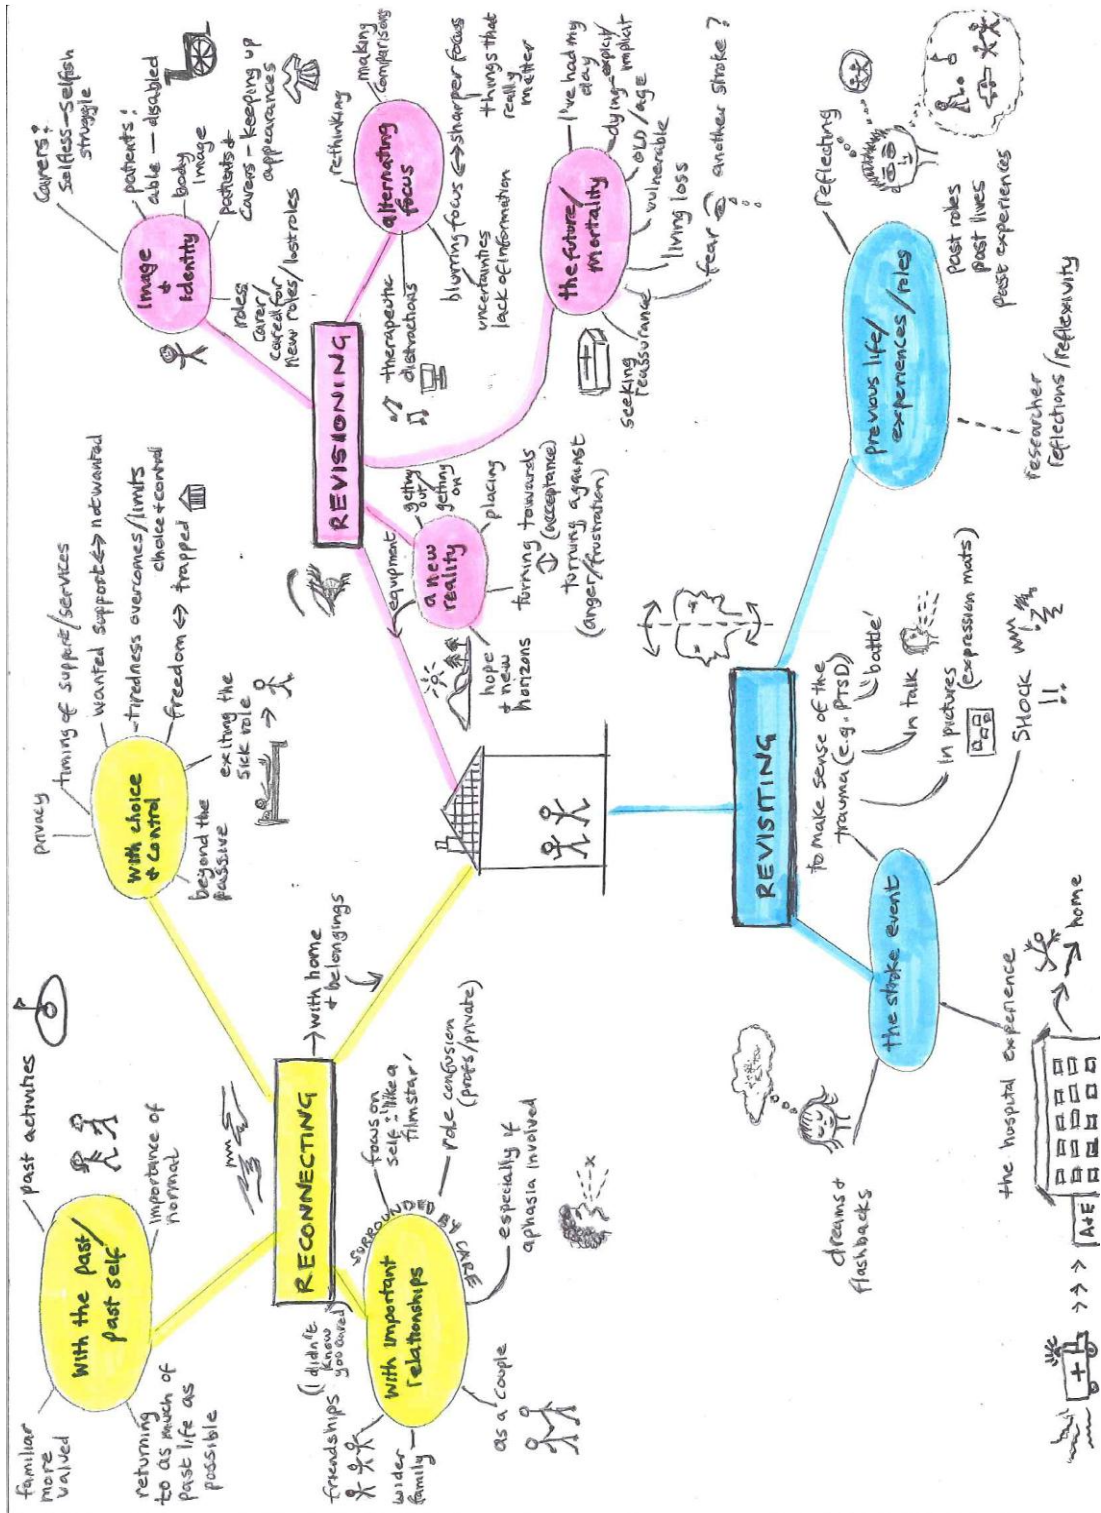 familiar
more
valued
past activities
with the past/
past self
importance of
normal
returning
to as much of
past life as
possible
privacy
timing of support/services
wanted support ↔ not wanted
tiredness overcomes/limits
choice + control
freedom ↔ trapped
with choice
+ control
beyond the
passive
exiting the
sick role
RECONNECTING
→ with home
+ belongings
friendships
('I didn't
know
you cared')
wider
family
with important
relationships
SURROUNDED BY CARE
focus on
self: 'like a
filmstar'
role confusion
(profs/private)
especially if
aphasia involved
as a couple
carers:
selfless–selfish
struggle
patients:
able – disabled
body
image
patients +
carers – keeping up
appearances
Image
+
Identity
roles
carer/
cared for
new roles/lost roles
REVISIONING
rethinking
making
comparisons
alternating
focus
blurring focus ↔ sharper focus
things that
really
matter
uncertainties
lack of information
therapeutic
distractions
the future/
mortality
'I've had my
day
dying explicit/
implicit
OLD/AGE
vulnerable
living loss
fear
another stroke?
seeking
reassurance
a new
reality
equipment
getting
out/
getting
on
placing
turning towards
(acceptance)
turning against
(anger/frustration)
hope
+ new
horizons
REVISITING
to make sense of the
trauma (e.g. PTSD)
'battle'
in talk
in pictures
(expression mats)
SHOCK
!!
the stroke event
dreams +
flashbacks
the hospital experience
A+E
home
previous life/
experiences/roles
reflecting
past roles
past lives
past experiences
researcher
reflections/reflexivity